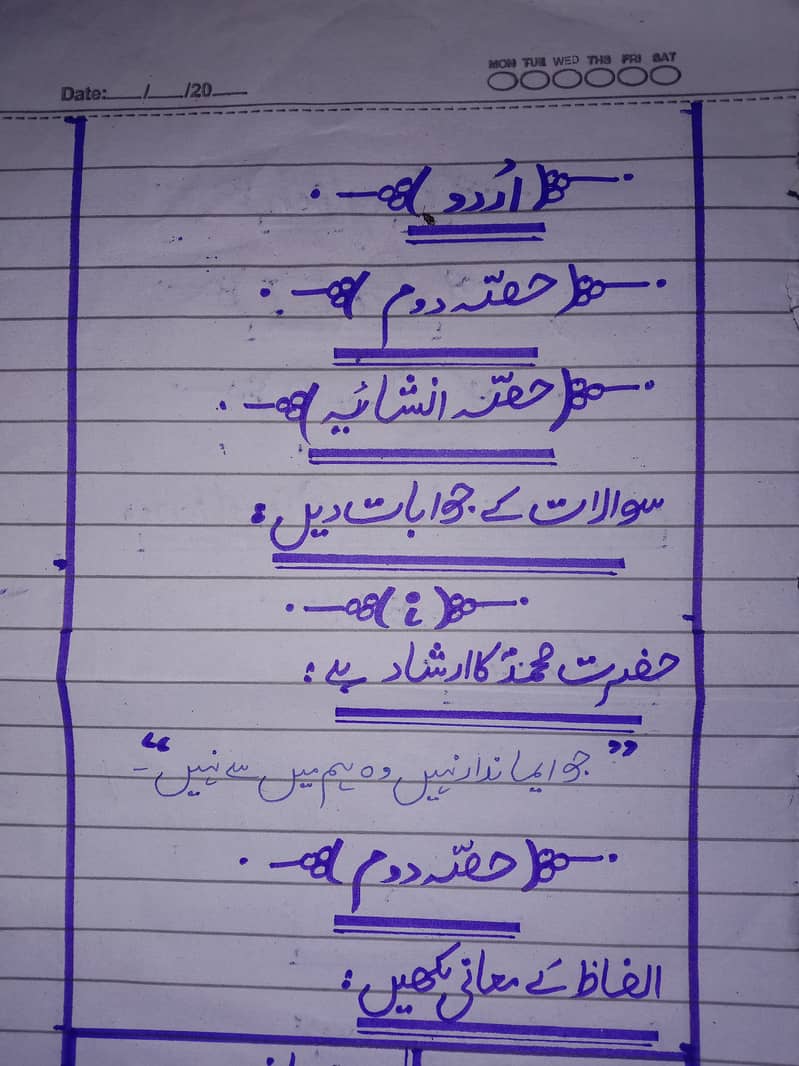 MON TUE WED THS FRI SAT
Date:___/___/20___
(اُردو)
(حصّہ دوم)
(حصّہ انشائیہ)
سوالات کے جوابات دیں:
(i)
حضرت محمدؐ کا ارشاد ہے:
"جو ایماندار نہیں وہ ہم میں سے نہیں"۔
(حصّہ دوم)
الفاظ کے معانی لکھیں: